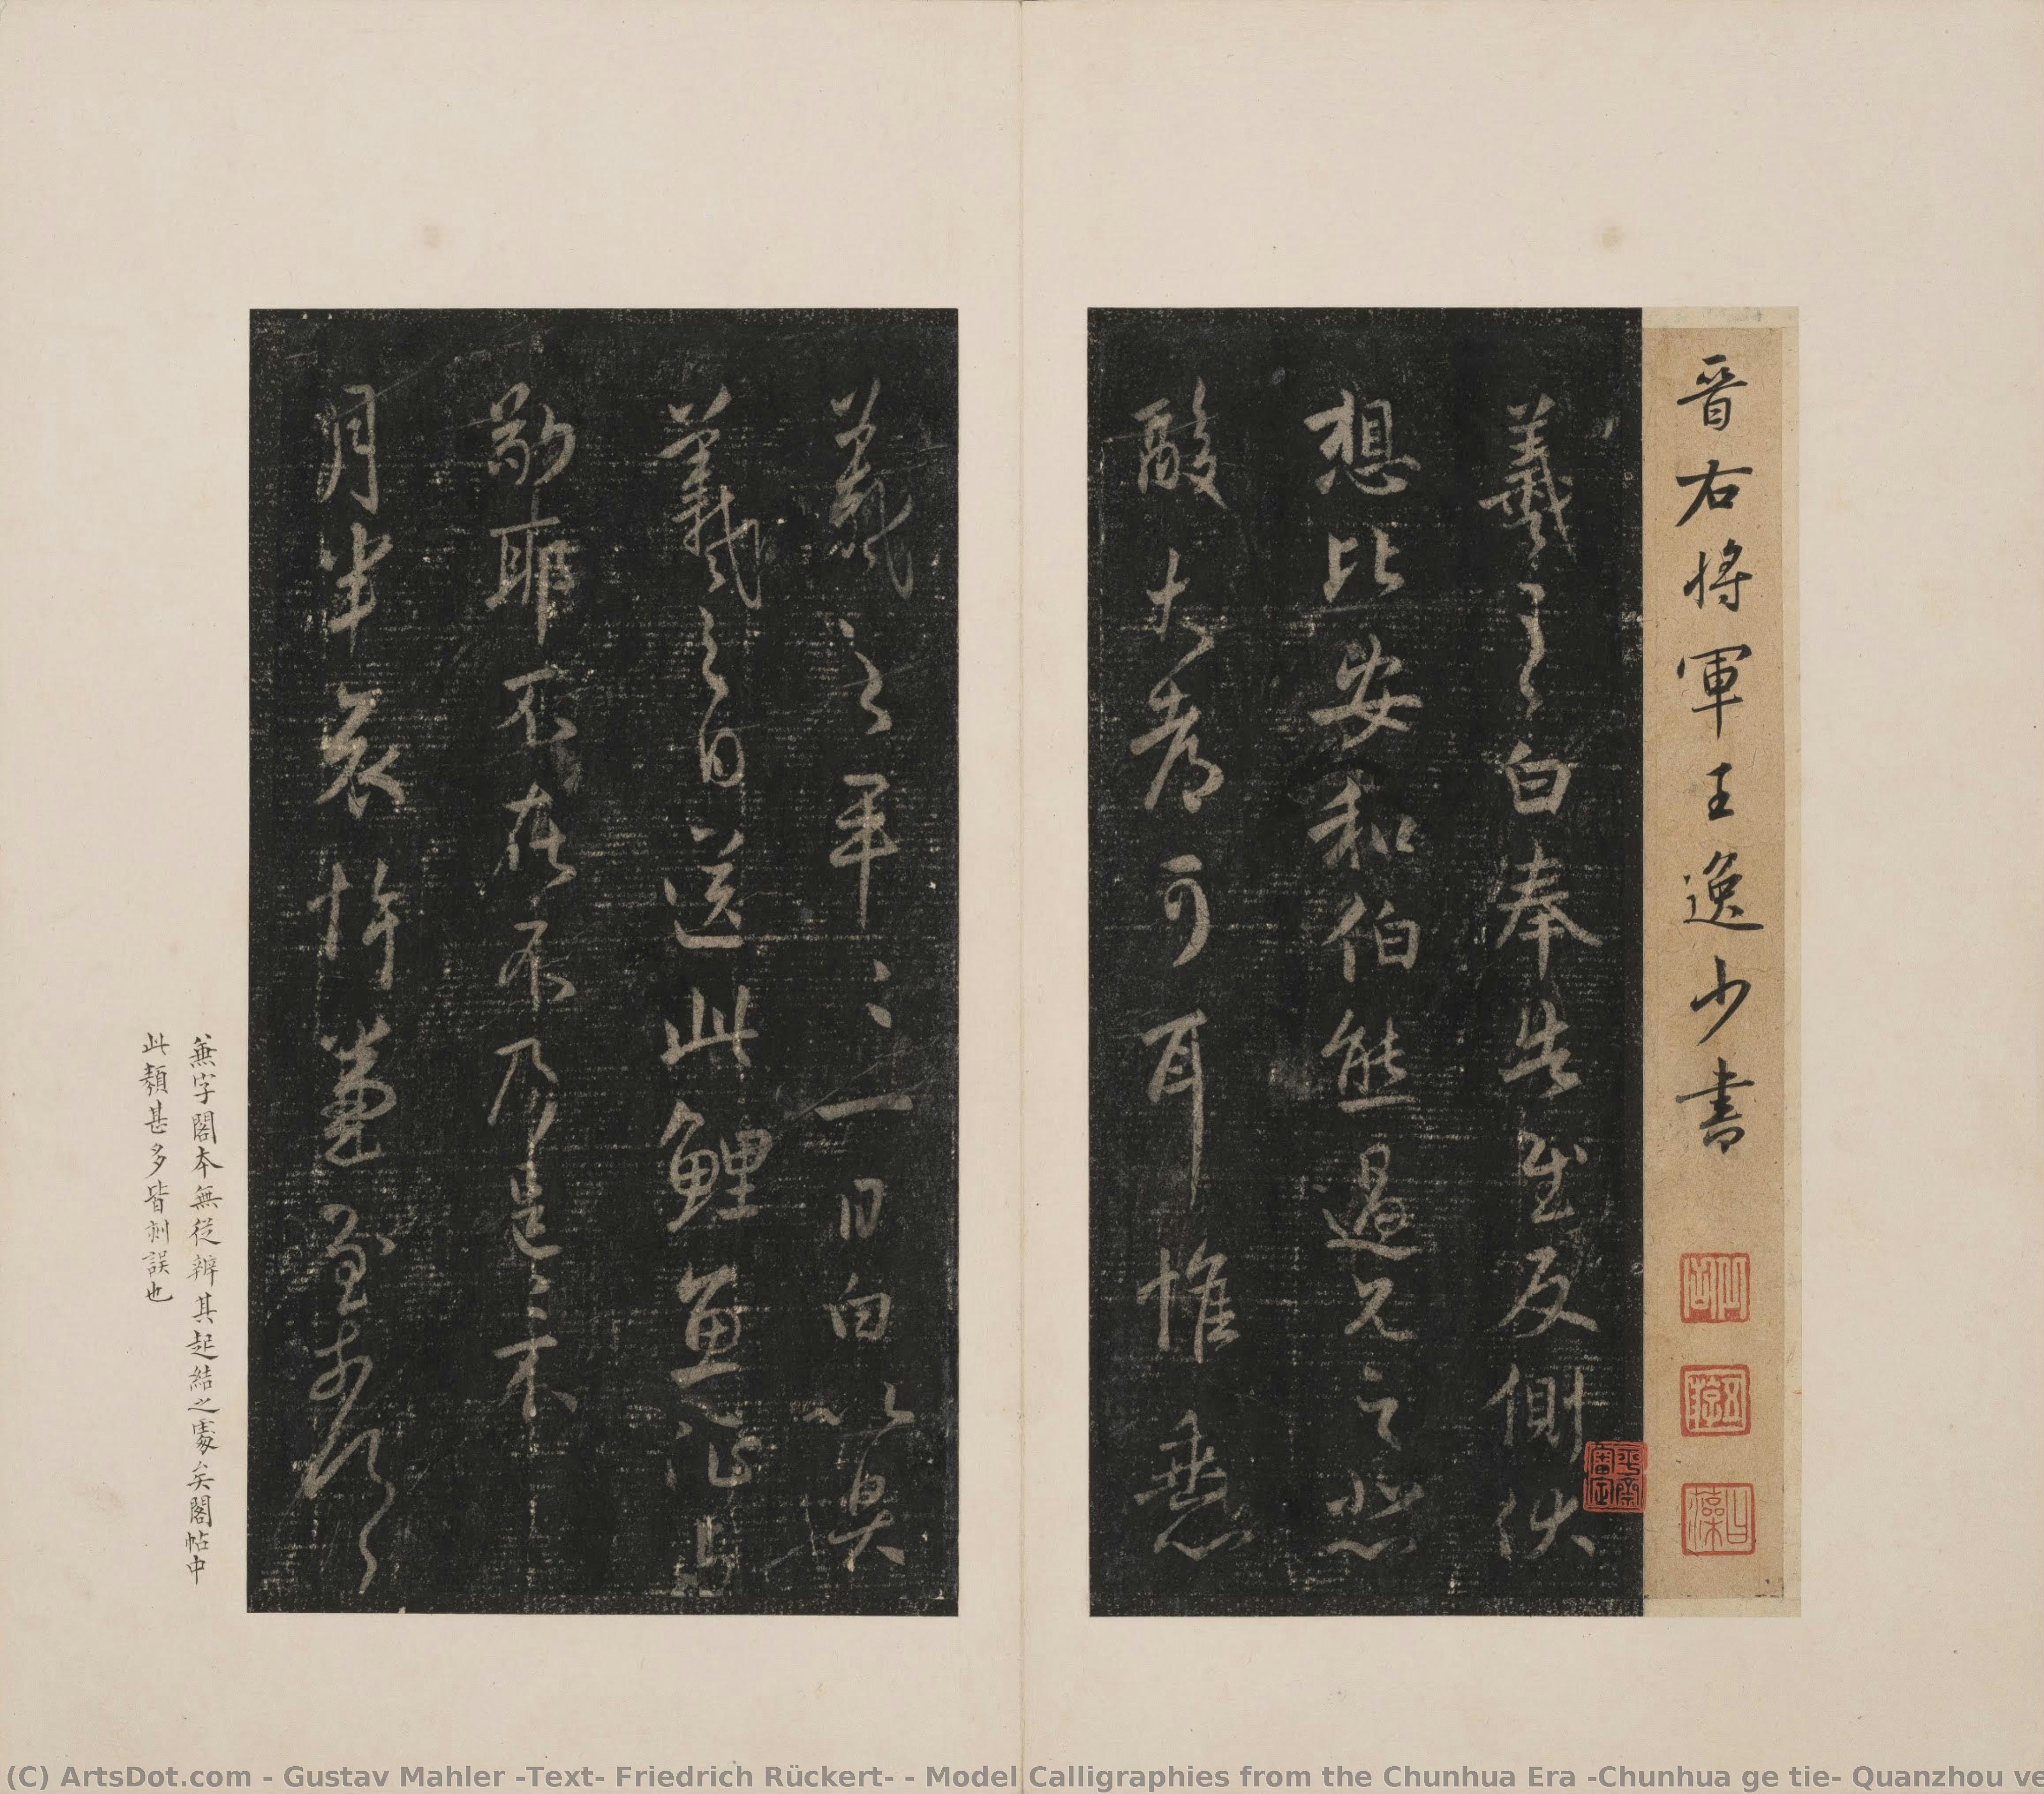 晉右將軍王逸少書
羲之白奉告慰反側伏
想比安和伯熊過見之悲
酸大都可耳惟垂
羲之一日白以具
羲之白送此鯉魚征與
敬耶不在不乃是〻不
月半哀悼兼至奈何〻
兼字閣本無從辨其起結之處矣閣帖中
此類甚多皆刻誤也
平齋審定
(C) ArtsDot.com - Gustav Mahler -Text- Friedrich Rückert- - Model Calligraphies from the Chunhua Era -Chunhua ge tie- Quanzhou ve